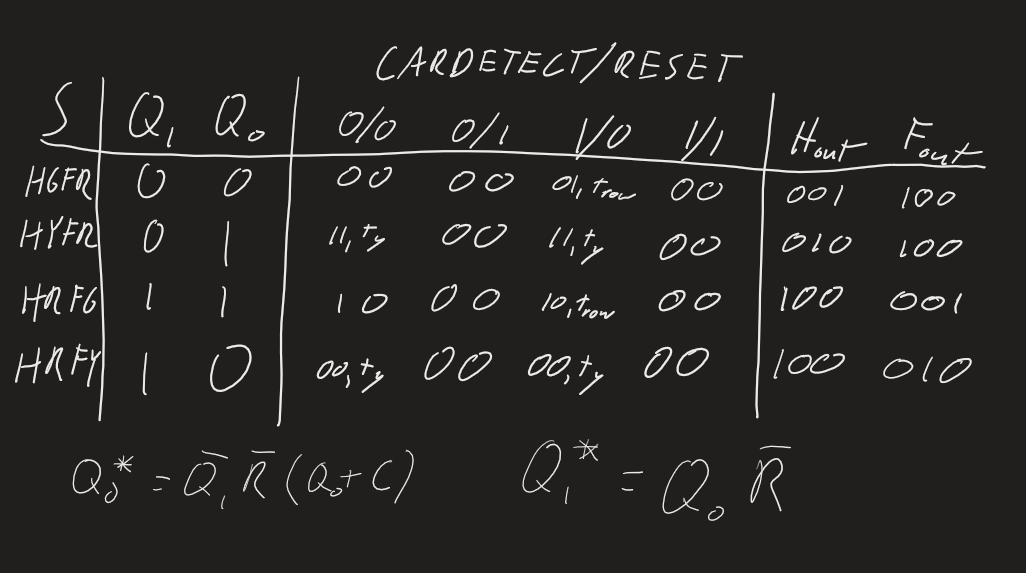 CARDETECT/RESET
S Q₁ Q₀ 0/0 0/1 1/0 1/1 Hout Fout
HGFR 0 0 00 00 01, trow 00 001 100
HYFR 0 1 11, ty 00 11, ty 00 010 100
HRFG 1 1 10 00 10, trow 00 100 001
HRFY 1 0 00, ty 00 00, ty 00 100 010
Q₀* = Q̅₁ R̅ (Q₀+C) Q₁* = Q₀ R̅